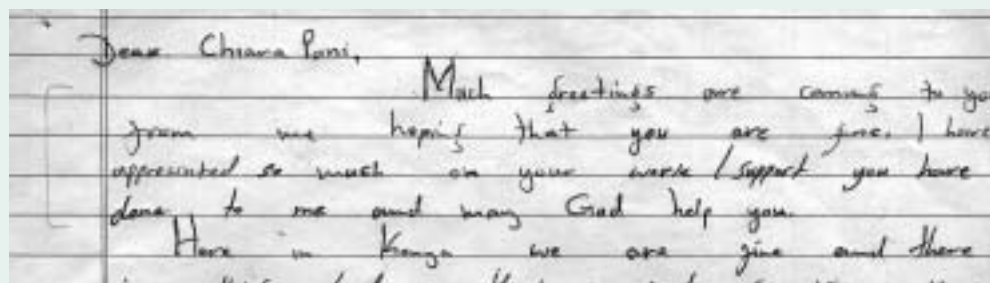 Dear Chiara Pani,
Much greetings are coming to yo
from me hoping that you are fine. I have
appreciated so much on your work / support you have
done to me and may God help you.
Here in Kenya we are fine and there